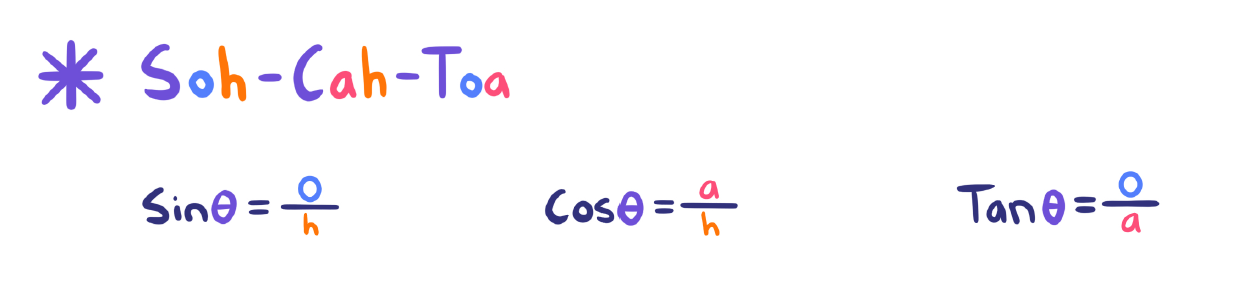 * Soh-Cah-Toa
Sinθ = o/h Cosθ = a/h Tanθ = o/a